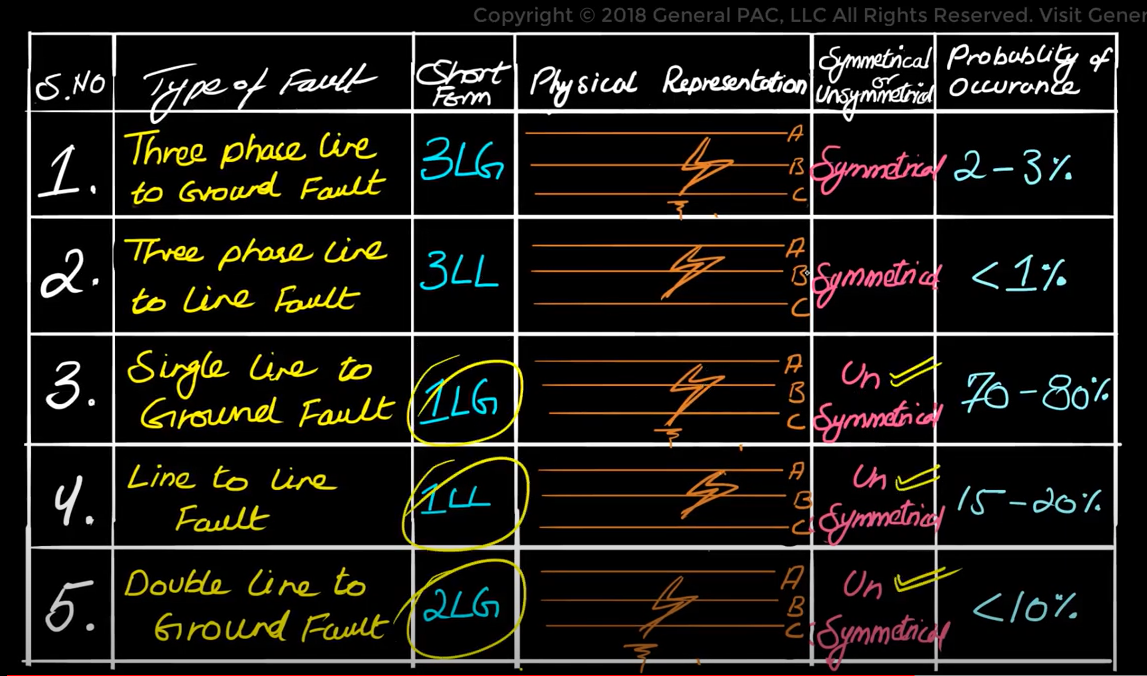 Copyright © 2018 General PAC, LLC All Rights Reserved. Visit Gener
S.NO
Type of Fault
Short
Form
Physical Representation
Symmetrical
or
Unsymmetrical
Probablity of
Occurance
1.
Three phase line
to Ground Fault
3LG
A
B
C
Symmetrical
2-3%
2.
Three phase line
to Line Fault
3LL
A
B
C
Symmetrical
<1%
3.
Single line to
Ground Fault
1LG
A
B
C
Un
Symmetrical
70-80%
4.
Line to line
Fault
1LL
A
B
C
Un
Symmetrical
15-20%
5.
Double line to
Ground Fault
2LG
A
B
C
Un
Symmetrical
<10%